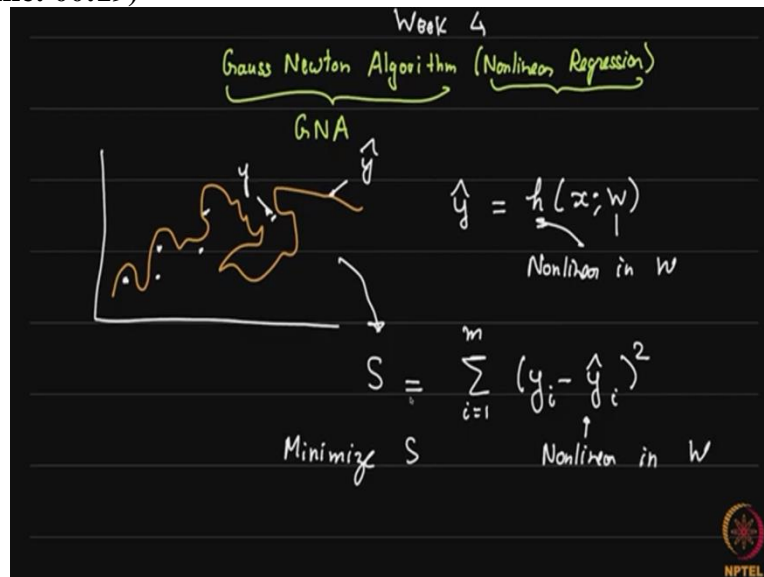 Week 4
Gauss Newton Algorithm (Nonlinear Regression)
GNA
y
ŷ
ŷ = h(x; w)
Nonlinear in w
m
S = Σ (yᵢ - ŷᵢ)²
i=1
Minimize S
Nonlinear in w
NPTEL